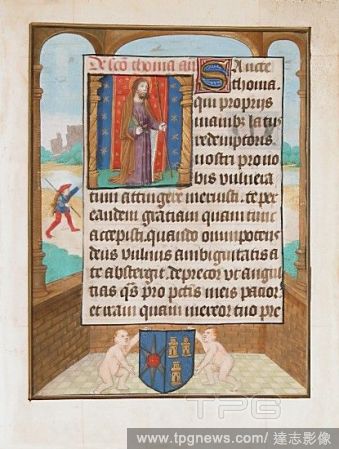 De scō thoma
Sancte
thoma.
qui proprijs
manibꝫ latus
redemptoris
nostri pro no
bis vulnera
tum attingere meruisti. te per
eandem gratiam quam tunc
accepisti. quando omnipotens
deus vulnus ambiguitatis a
te abstergit. deprecor ut angu
pro pctīs meis pacior
et iram quam mereor tuo pre
TPG
www.tpgnews.com/ 達志影像